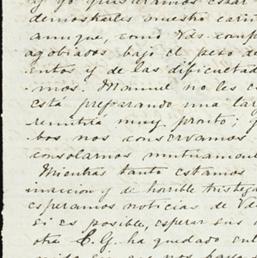 y yo quisiéramos estar
demostrarles nuestro cari
aunque, como Vds. comp
agobiados bajo el peso d
entos y de las dificultad
mos. Manuel no les e
está preparando una lar
remitirá muy pronto;
bos nos conservamos
consolarnos mutuamen
Mientras tanto estamos
inacción y de horrible tristeza
esperamos noticias de Vds
si es posible, esperar sus
otra C. G. ha quedado ent